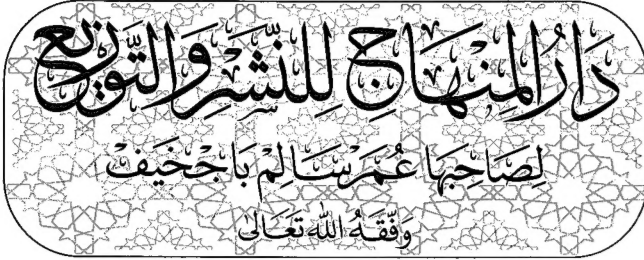 دَارُ المِنْهَاجِ لِلنَّشْرِ وَالتَّوْزِيعِ
لِصَاحِبِهَا عُمَرْ سَالِمْ بَاجْخَيفْ
وَفَّقَهُ اللهُ تَعَالَىٰ